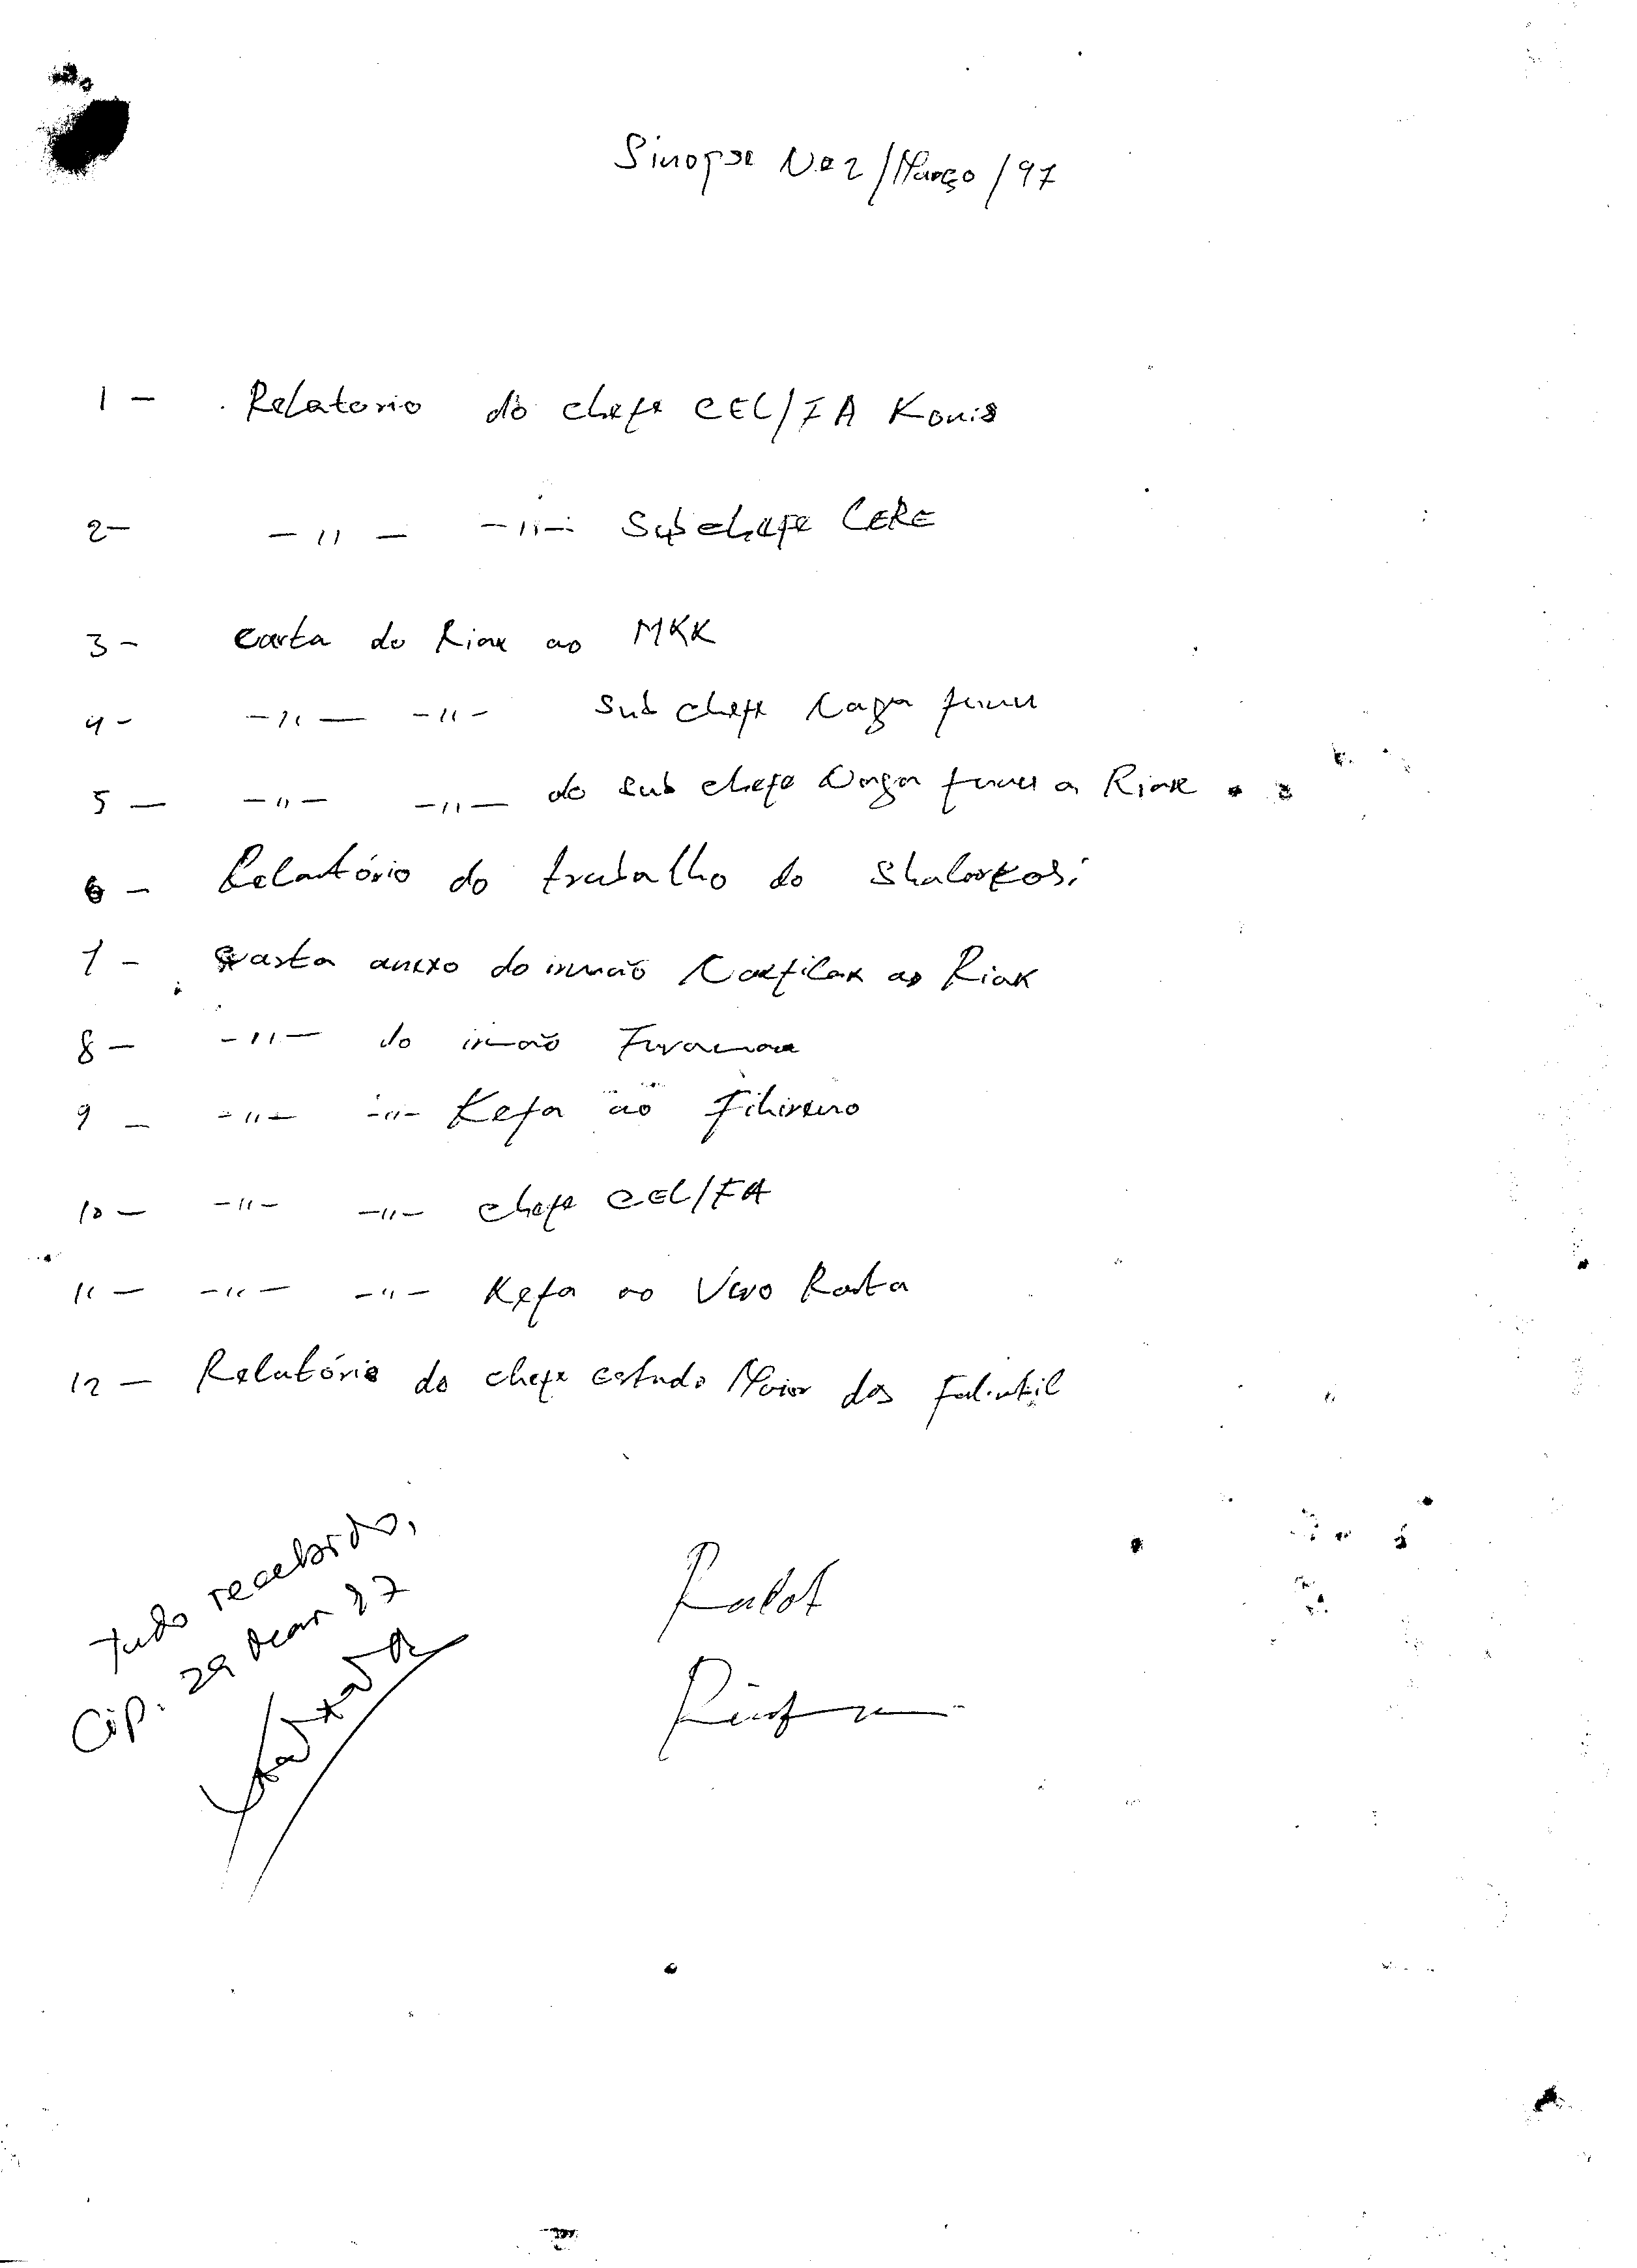 Sinopse Nº 2/Março/97
1 - Relatorio do chefe CEL/FA Konis
2- -"- -"- Sub chefe CERE
3- Carta do Riak ao MKK
4- -"- -"- Sub chefe
5- -"- -"- do sub chefe a Riak
6- Relatório do trabalho do
7- Carta anexo do irmão ao Riak
8- -"- do irmão
9- -"- -"- Kefa ao
10- -"- -"- chefe CEL/FA
11- -"- -"- Kefa ao Vero Rata
12- Relatório do chefe estado Maior das Falintil
Tudo recebido,
Cip. 29 Mar 97